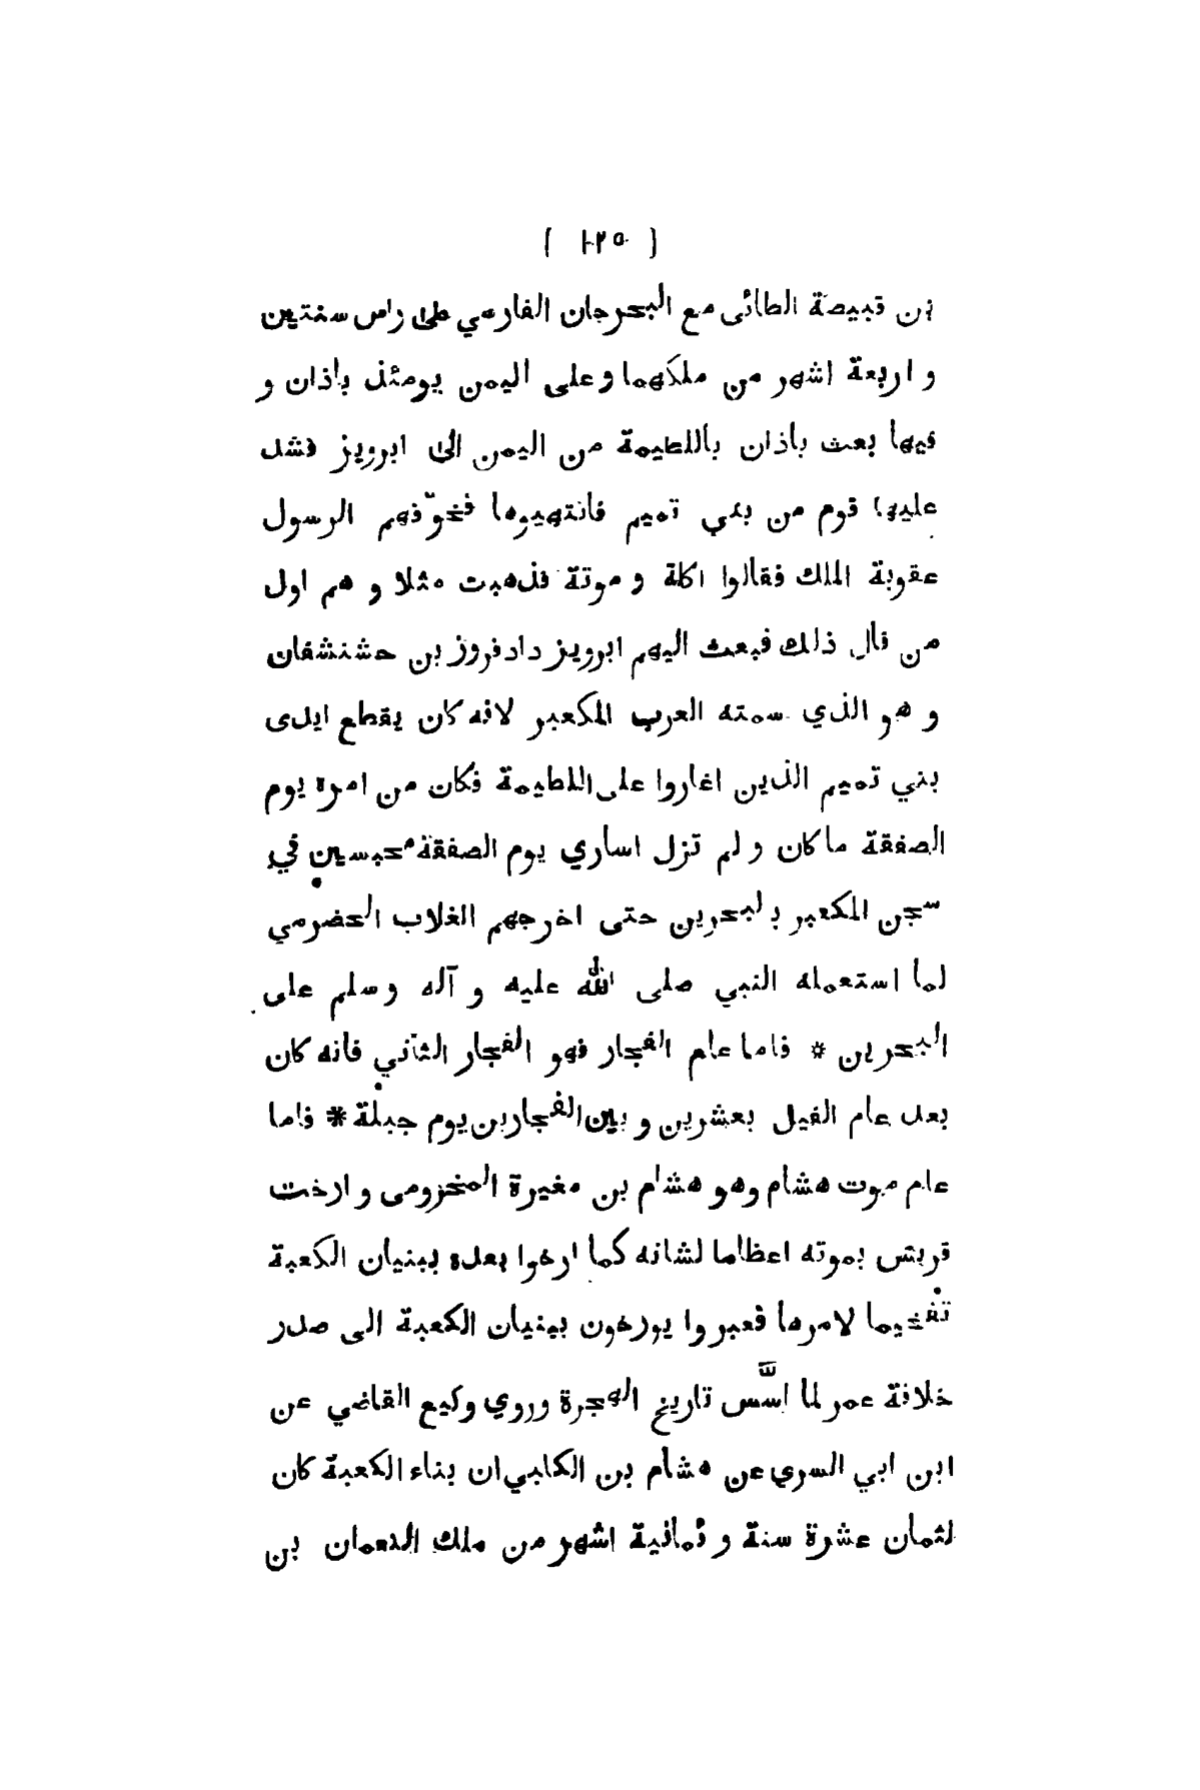 ( ١٢٥ )
بن قبيصة الطائى مع البحرجان الفارسي على راس سنتين
و اربعة اشهر من ملكهما وعلى اليمن يومئذ باذان و
فيها بعث باذان باللطيمة من اليمن الى ابرويز فشد
عليها قوم من بني تميم فانتهبوها فخوّفهم الرسول
عقوبة الملك فقالوا اكلة و موتة فذهبت مثلا و هم اول
من قال ذلك فبعث اليهم ابرويز دادفروز بن حشنشفان
و هو الذي سمته العرب المكعبر لانه كان يقطع ايدى
بني تميم الذين اغاروا على اللطيمة فكان من امره يوم
الصفقة ما كان و لم تزل اساري يوم الصفقة محبسين في
سجن المكعبر بالبحرين حتى اخرجهم الغلاب الحضرمي
لما استعمله النبي صلى الله عليه و آله وسلم على
البحرين * فاما عام الفجار فهو الفجار الثاني فانه كان
بعد عام الفيل بعشرين و بين الفجاربن يوم جبلة * فاما
عام موت هشام وهو هشام بن مغيرة المخزومى و ارخت
قريش بموته اعظاما لشانه كما ارخوا بعده ببنيان الكعبة
تفخيما لامرها فعبروا يورخون ببنيان الكعبة الى صدر
خلافة عمر لما اسّس تاريخ الهجرة وروي وكيع القاضي عن
ابن ابي السري عن هشام بن الكلبي ان بناء الكعبة كان
لثمان عشرة سنة و ثمانية اشهر من ملك النعمان بن